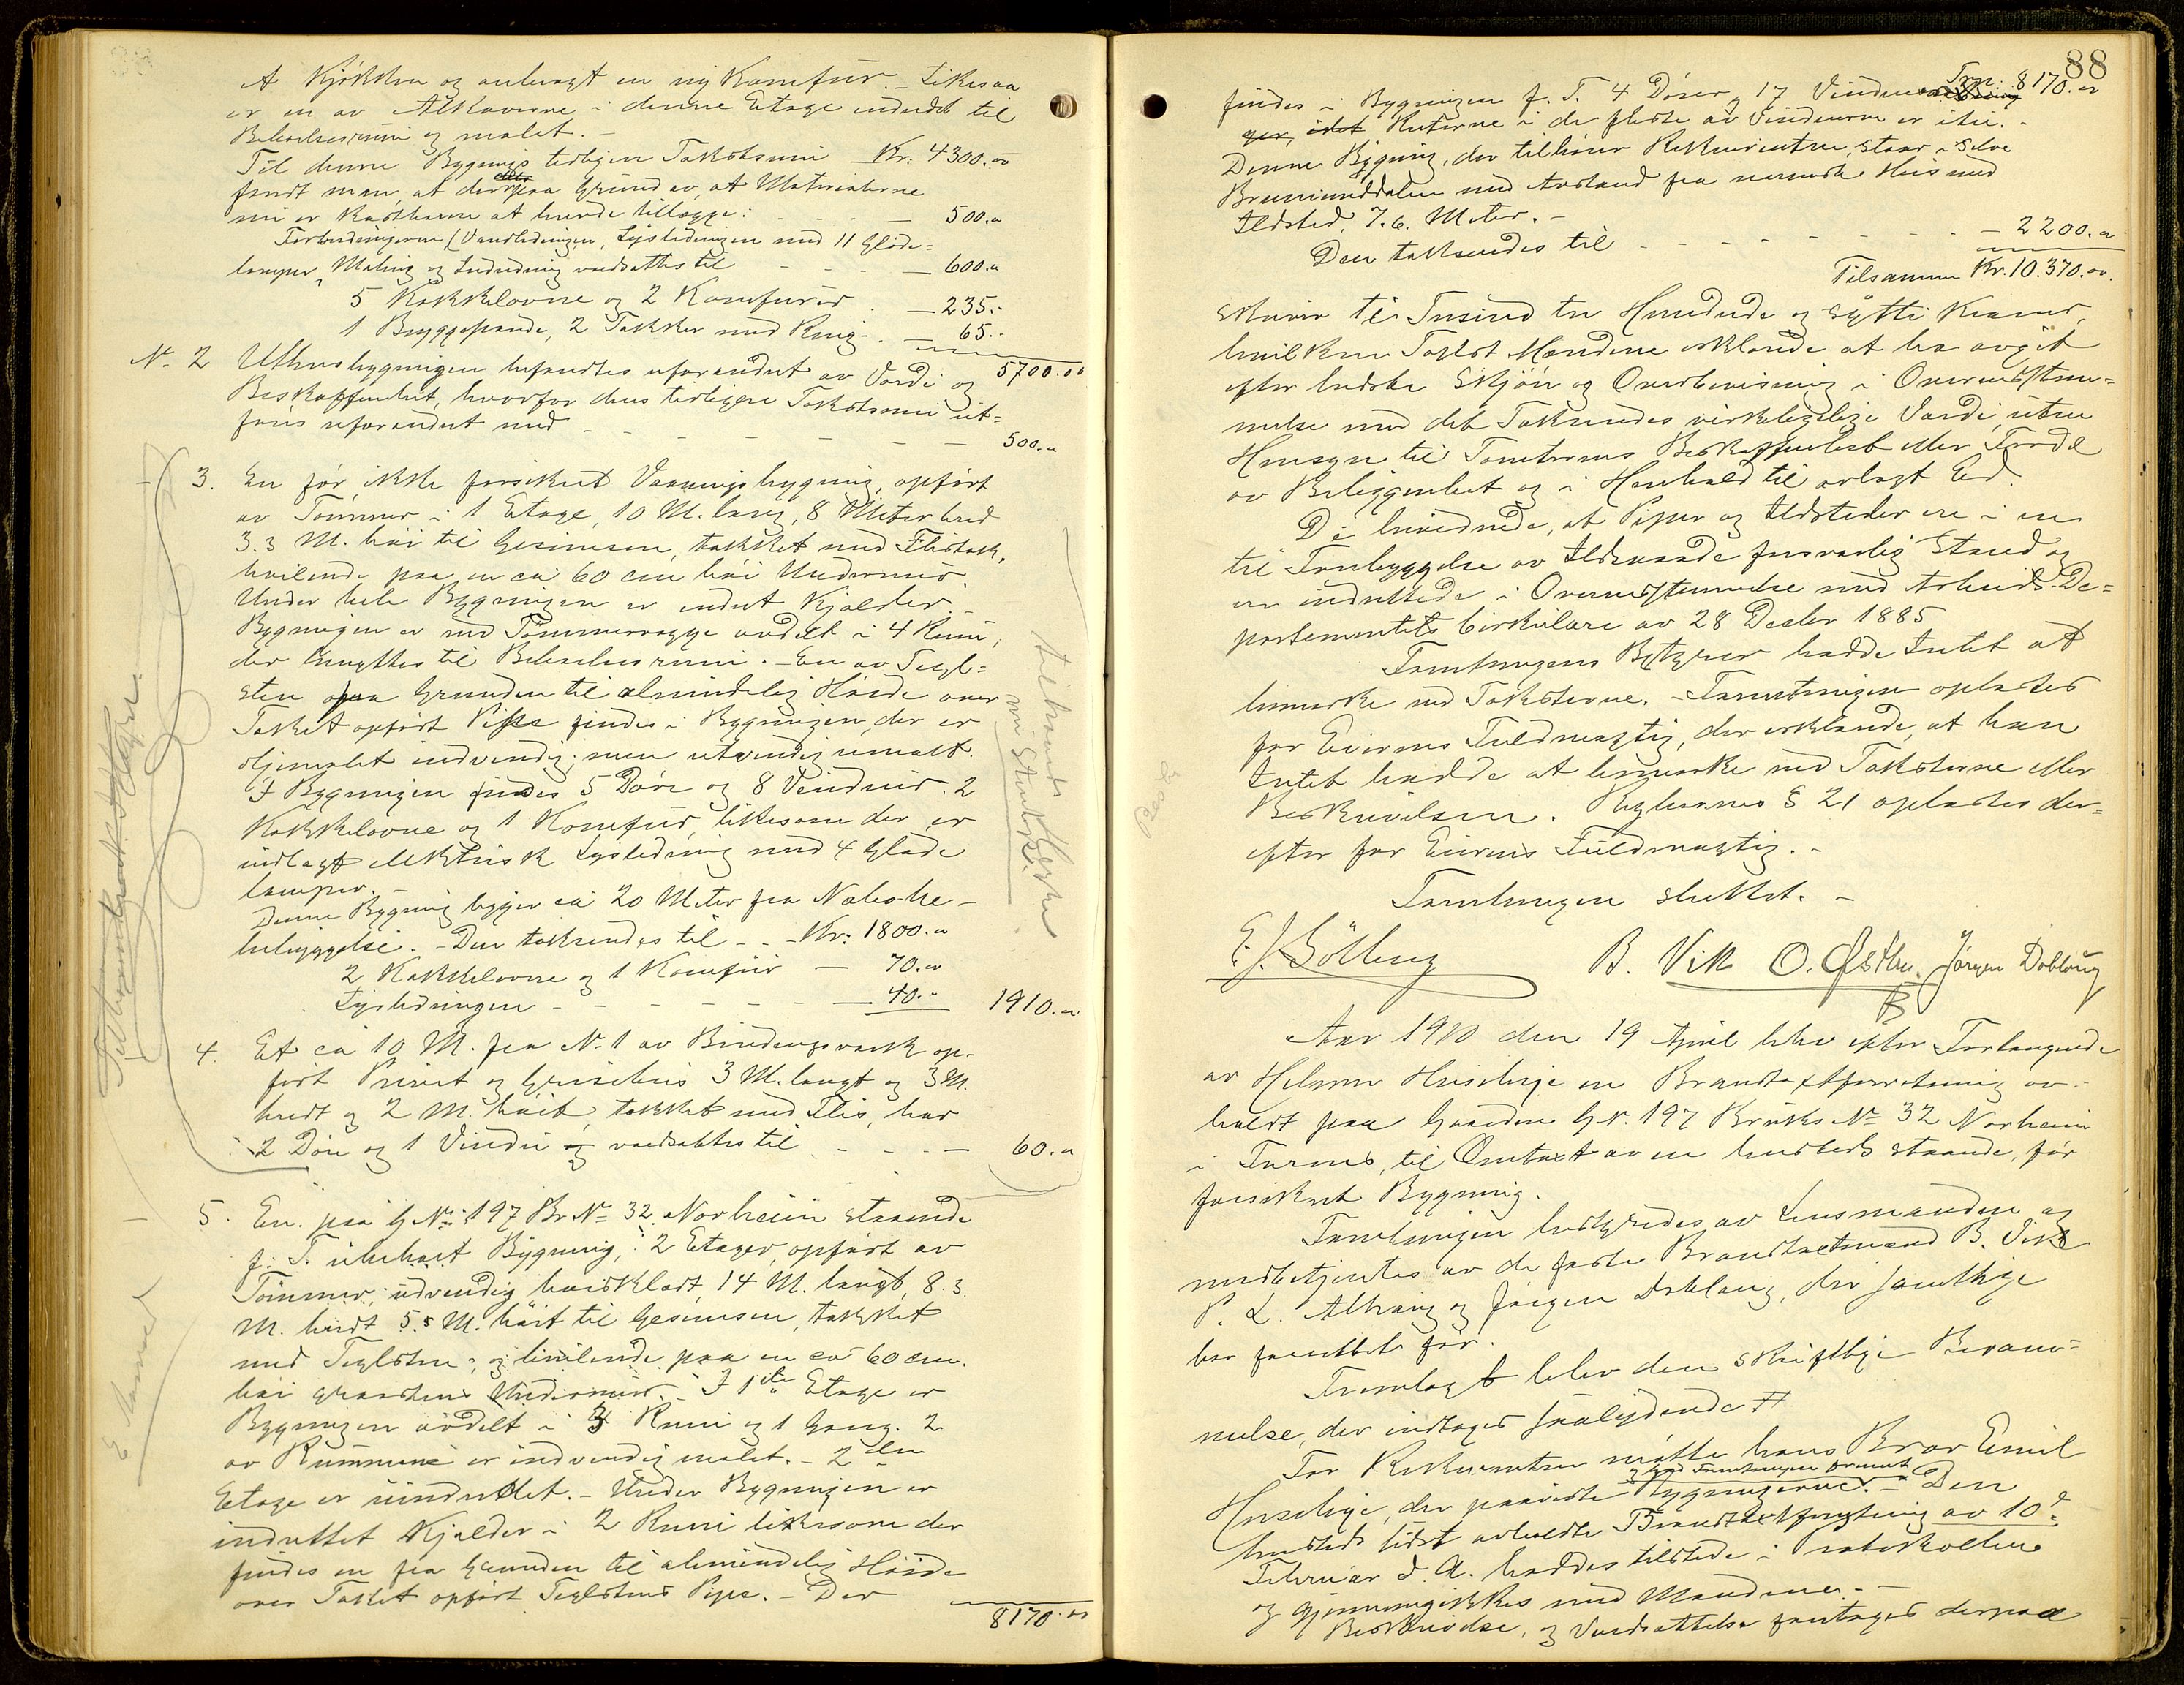 et Kjøkken og anbragt en ny Komfur. - Likesaa
er en av Alkoverne i denne Etage indredet til
Beboelsesrum og malet. -
Til denne Bygnings tidligere Takstsum Kr: 4300.00
fandt man, at der paa Grund av, at Materialerne
nu er kostbarere at burde tillægge: - - - 500.00
Forbedringerne (Vandledningen, Lysledningen med 11 Gløde=
lamper, Maling og Indredning værdsættes til - - - 600.00
5 Kakkelovne og 2 Komfurer - 235.-
1 Bryggepande, 2 Takker med Ring - 65.-
5700.00
N. 2 Uthusbygningen befandtes uforandret av Værdi og
Beskaffenhet, hvorfor dens tidligere Takstsum ut=
føres uforandret med - - - - - - 500.00
3. En før ikke forsikret Vaaningsbygning, opført
av Tømmer i 1 Etage, 10 M. lang, 8 Meter bred
3.3 M. høi til Gesimsen, takket med Flistak,
hvilende paa en ca 60 cm høi Undermur.
Under hele Bygningen er indret Kjælder. -
Bygningen er med Tømmervægge avdelt i 4 Rum,
der benyttes til Beboelsesrum. - En av Tegl=
sten fra Grunden til almindelig Høide over
Taket opført Pipe findes i Bygningen, der er
oljemalet indvendig, men utvendig umalt.
I Bygningen findes 5 Døre og 8 Vinduer. 2
Kakkelovne og 1 Komfur, likesom der er
indlagt elektrisk Lysledning med 4 Gløde
lamper. -
Denne Bygning ligger ca 20 Meter fra Nabo-be-
bebyggelse. - Den takseredes til - - Kr: 1800.00
2 Kakkelovne og 1 Komfur - 70.00
Lysledningen - - - - - - 40.- 1910.00
4. Et ca 10 M. fra N. 1 av Bindingsverk op-
ført Privet og Grisehus 3 M. langt og 3 M.
bredt og 2 M. høit, takket med Flis, har
2 Døre og 1 Vindu og værdsættes til - - - - 60.00
5. En paa G.No. 197 Br.No 32 Norheim staaende
f. T. ubeboet Bygning, i 2 Etager, opført av
Tømmer, utvendig bordklædt, 14 M. langt, 8.3
M. bredt 5.5 M. høit til Gesimsen, takket
med Teglsten, og hvilende paa en ca 60 cm.
høi graastens Undermur. - I 1ste Etage er
Bygningen avdelt i 3 Rum og 1 Gang. 2
av Rummene er indvendig malet. - 2den
Etage er uindredet. - Under Bygningen er
indrettet Kjælder i 2 Rum likesom der
findes en fra Grunden til almindelig Høide
over Taket opført Teglstens Pipe. - Der
8170.00
88
Trp. 8170.00
findes i Bygningen f. T. 4 Døre, 17 Vinduer
Ruterne i de fleste av Vinduerne er itu. -
Denne Bygning, der tilhører Rekvirenten, staar i Selve
Brumunddalen med Avstand fra nærmeste Hus med
Ildsted, 7.6. Meter. -
Den takseredes til - - - - - - - - 2200.00
Tilsammen Kr. 10.370.00.
skriver Ti Tusind tre Hundrede og sytti Kroner,
hvilken Takst Mændene erklærede at ha avgit
efter bedste Skjøn og Overbevisning i Overensstem=
melse med det Takseredes virkeliglige Værdi, uten
Hensyn til Tomternes Beskaffenhet eller Fordel
av Beliggenhet og i Henhold til avlagt Ed.
De bevidnede, at Piper og Ildsteder ere i en
til Forebyggelse av Ildsvaade forsvarlig Stand og
er indrettede i Overensstemmelse med Arbeids-De=
partementets Cirkulære av 28 Decbr 1885
Forretningens Bestyrer hadde Intet at
bemærke ved Taksterne. - Forretningen oplæstes
for Eierens Fuldmægtig, der erklærede, at han
Intet hadde at bemærke ved Taksterne eller
Beskrivelsen. Reglernes § 21 oplæstes der=
efter for Eierens Fuldmægtig. -
Forretningen sluttet. -
B. Vik O. Østlu. Jørgen Dobloug
Aar 1910 den 19 April blev efter Forlangende
av Helmer Huselije en Brandtaxtforretning av-
holdt paa Gaarden G.N. 197 Bruks No 32 Norheim
i Furnes, til Omtaxt av en herstets staaende, før
forsikret Bygning.
Forretningen bestyredes av Lensmanden og
medbetjentes av de faste Brandtaxtmænd B. Vik
P. L. Alhaug og Jørgen Dobloug, der samtlige
har fremtbt før.
Fremlagt blev den skriftlige Begjæ=
relse, der indtages saalydende #
For Rekvirenten møtte hans Bror Emil
Huselije, der paaviste Bygningerne. - Den
herstets sidst avholdte Brandtaxtforretning av 10de
Februar d. A. haddes tilstede i Protokollen
og gjennemgikkes med Mændene. -
Beskrivelse og Værdsættelse foretages derpaa